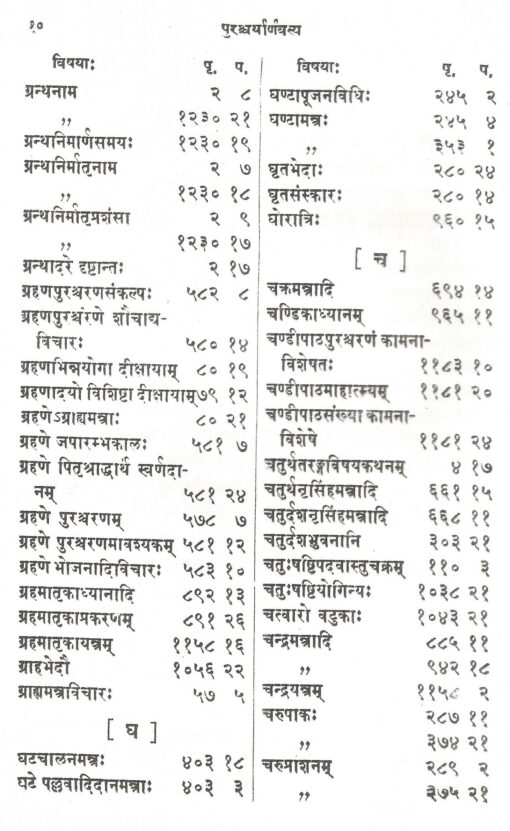 १०
पुरश्चर्यार्णवस्य
विषयाः पृ. प.
ग्रन्थनाम २ ८
,, १२३० २१
ग्रन्थनिर्माणसमयः १२३० १९
ग्रन्थनिर्मातृनाम २ ७
,, १२३० १८
ग्रन्थनिर्मातृप्रशंसा २ ९
,, १२३० १७
ग्रन्थादरे दृष्टान्तः २ १७
ग्रहणपुरश्चरणसंकल्पः ५८२ ८
ग्रहणपुरश्चरणे शौचाद्य-
विचारः ५८० १४
ग्रहणभिन्नयोगा दीक्षायाम् ८० १९
ग्रहणादयो विशिष्टा दीक्षायाम् ७९ १२
ग्रहणेऽग्राह्यमन्त्राः ८० २१
ग्रहणे जपारम्भकालः ५८१ ७
ग्रहणे पितृश्राद्धार्थं स्वर्णदा-
नम् ५८१ २४
ग्रहणे पुरश्चरणम् ५७८ ७
ग्रहणे पुरश्चरणमावश्यकम् ५८१ १२
ग्रहणे भोजनादिविचारः ५८३ १०
ग्रहमातृकाध्यानादि ८९२ १३
ग्रहमातृकाप्रकरणम् ८९१ २६
ग्रहमातृकायन्त्रम् ११५८ १६
ग्राहभेदौ १०५६ २२
ग्राह्यमन्त्रविचारः ५७ ५
[ घ ]
घटचालनमन्त्रः ४०३ १८
घटे पल्लवादिदानमन्त्राः ४०३ ३
विषयाः पृ. प.
घण्टापूजनविधिः २४५ २
घण्टामन्त्रः २४५ ४
,, ३५३ १
घृतभेदाः २८० २४
घृतसंस्कारः २८० १४
घोरात्रिः ९६० १५
[ च ]
चक्रमन्त्रादि ६९४ १४
चण्डिकाध्यानम् ९६५ ११
चण्डीपाठपुरश्चरणं कामना-
विशेषतः ११८३ १०
चण्डीपाठमाहात्म्यम् ११८१ २०
चण्डीपाठसंख्या कामना-
विशेषे ११८१ २४
चतुर्थतरङ्गविषयकथनम् ४ १७
चतुर्थनृसिंहमन्त्रादि ६६१ १५
चतुर्दशनृसिंहमन्त्रादि ६६८ ११
चतुर्दशभुवनानि ३०३ २१
चतुःषष्टिपदवास्तुचक्रम् ११० ३
चतुःषष्टियोगिन्यः १०३८ २१
चत्वारो वटुकाः १०४३ २१
चन्द्रमन्त्रादि ८८५ ११
,, ९४२ १८
चन्द्रयन्त्रम् ११५८ २
चरुपाकः २८७ ११
,, ३७४ २१
चरुप्राशनम् २८९ २
,, ३७५ २१